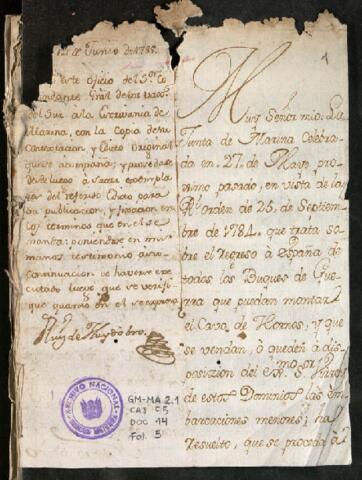 de Junio de 1785.
este oficio del S.r Co
mandante Gral de los vaxs.
del Sur a la Escrivania de
Marina, con la Copia de mi
Contextacion, y Edicto Original
que se acompaña; y procedase
desde luego à sacar exemplar
del referido Edicto para
su publicacion, y fixacion en
los terminos que en el se
manda: poniendose en mis
manos testimonio à su
continuacion de haverse exe
cutado luego que se verifi
que quanto en el se expresa
1
Muy Señor mio: La
Junta de Marina Celebra
da en 27,, de Mayo pro
ximo pasado, en vista de la
R.l orden de 25, de Septiem
bre de 1784,, que trata so
bre el Regreso à España de
todos los Buques de Gue
rra que puedan montar
el Cavo de Hornos, y que
se vendan, ò queden à dis
posicion del
de estos Dominios las em
barcaciones menores; ha
resuelto, que se proceda à
ARCHIVO NACIONAL
GM-MA 2.1
CAJ 55
DOC 14
Fol. 5